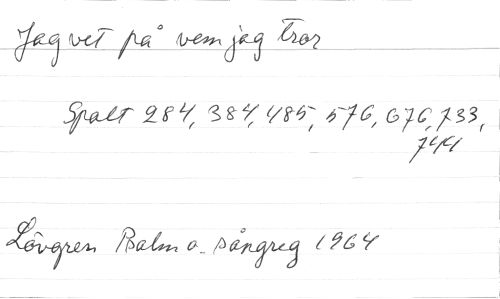 Jag vet på vem jag Tror
Spalt 284, 384, 485, 576, 676, 733,
744
Lövgren Psalm o. sångreg 1964